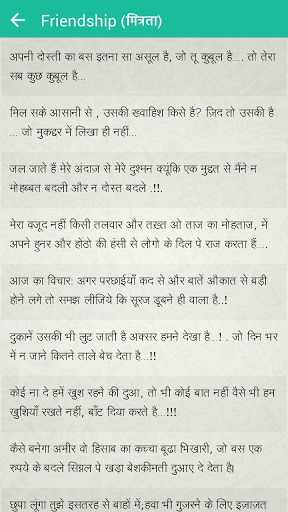 Friendship (मित्रता)
अपनी दोस्ती का बस इतना सा असूल है, जो तू कुबूल है.... तो तेरा
सब कुछ कुबूल है...
मिल सके आसानी से , उसकी ख्वाहिश किसे है? ज़िद तो उसकी है
... जो मुकद्दर में लिखा ही नहीं...
जल जाते हैं मेरे अंदाज़ से मेरे दुश्मन क्यूंकि एक मुद्दत से मैंने न
मोहब्बत बदली और न दोस्त बदले .!!.
मेरा वजूद नहीं किसी तलवार और तख़्त ओ ताज का मोहताज, में
अपने हुनर और होंठो की हंसी से लोगो के दिल पे राज करता हैं....
आज का विचार: अगर परछाईयाँ कद से और बातें औकात से बड़ी
होने लगे तो समझ लीजिये कि सूरज डूबने ही वाला है..!
दुकानें उसकी भी लुट जाती है अक्सर हमने देखा है...! . जो दिन भर
में न जाने कितने ताले बेच देता है...!!
कोई ना दे हमें खुश रहने की दुआ, तो भी कोई बात नहीं वैसे भी हम
खुशियाँ रखते नहीं, बाँट दिया करते है...!!!
कैसे बनेगा अमीर वो हिसाब का कच्चा बूढा भिखारी, जो बस एक
रुपये के बदले सिग्नल पे खड़ा बेशकीमती दुआए दे देता है।
छुपा लूंगा तुझे इसतरह से बाहों में;हवा भी गुज़रने के लिए इज़ाज़त